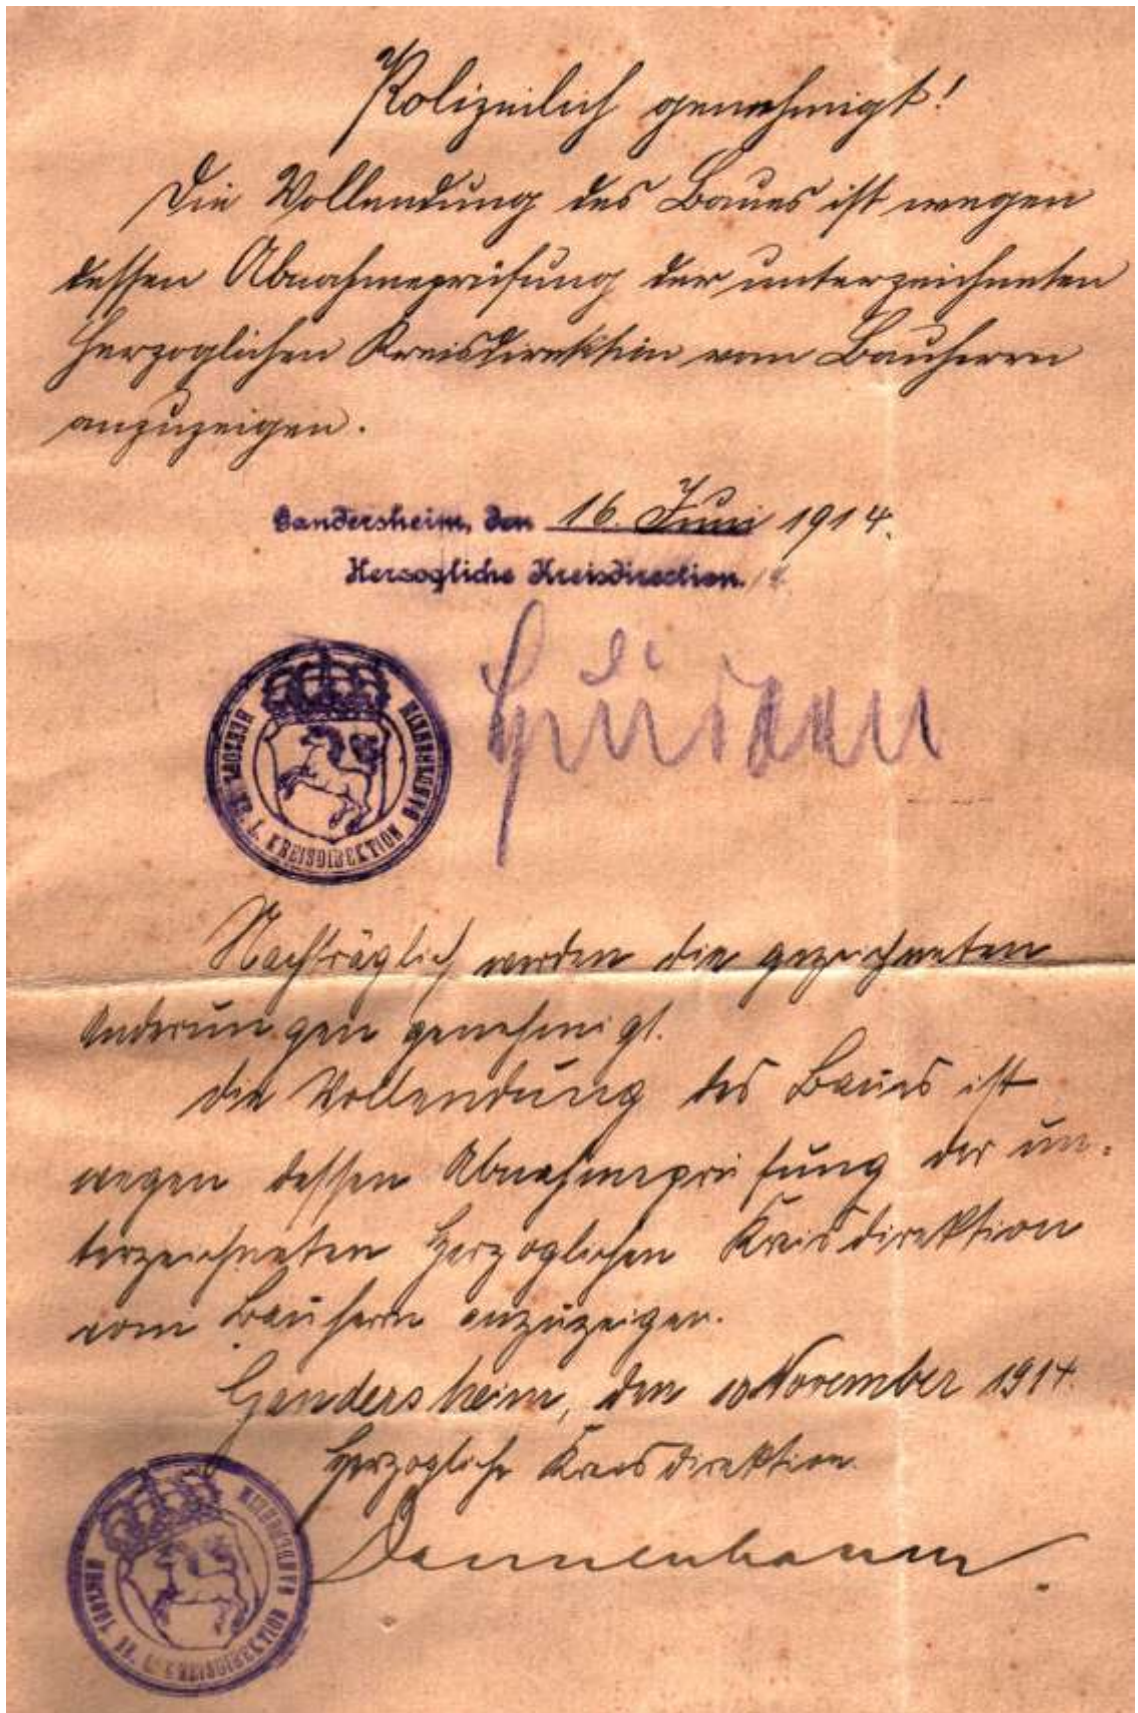 Polizeilich genehmigt!
Die Vollendung des Baues ist wegen
dessen Abnahmeprüfung der unterzeichneten
Herzoglichen Kreisdirektion vom Bauherrn
anzuzeigen.
Gandersheim, den 16. Juni 1914.
Herzogliche Kreisdirection.
HERZOGL. BR. L. KREISDIREKTION GANDERSHEIM
Nachträglich werden die gezeichneten
Änderungen genehmigt.
Die Vollendung des Baues ist
wegen dessen Abnahmeprüfung der un-
terzeichneten Herzoglichen Kreisdirektion
vom Bauherrn anzuzeigen.
Gandersheim, den 10 November 1914.
Herzogliche Kreisdirektion.
HERZOGL. BR. L. KREISDIREKTION GANDERSHEIM
Dannenbaum.